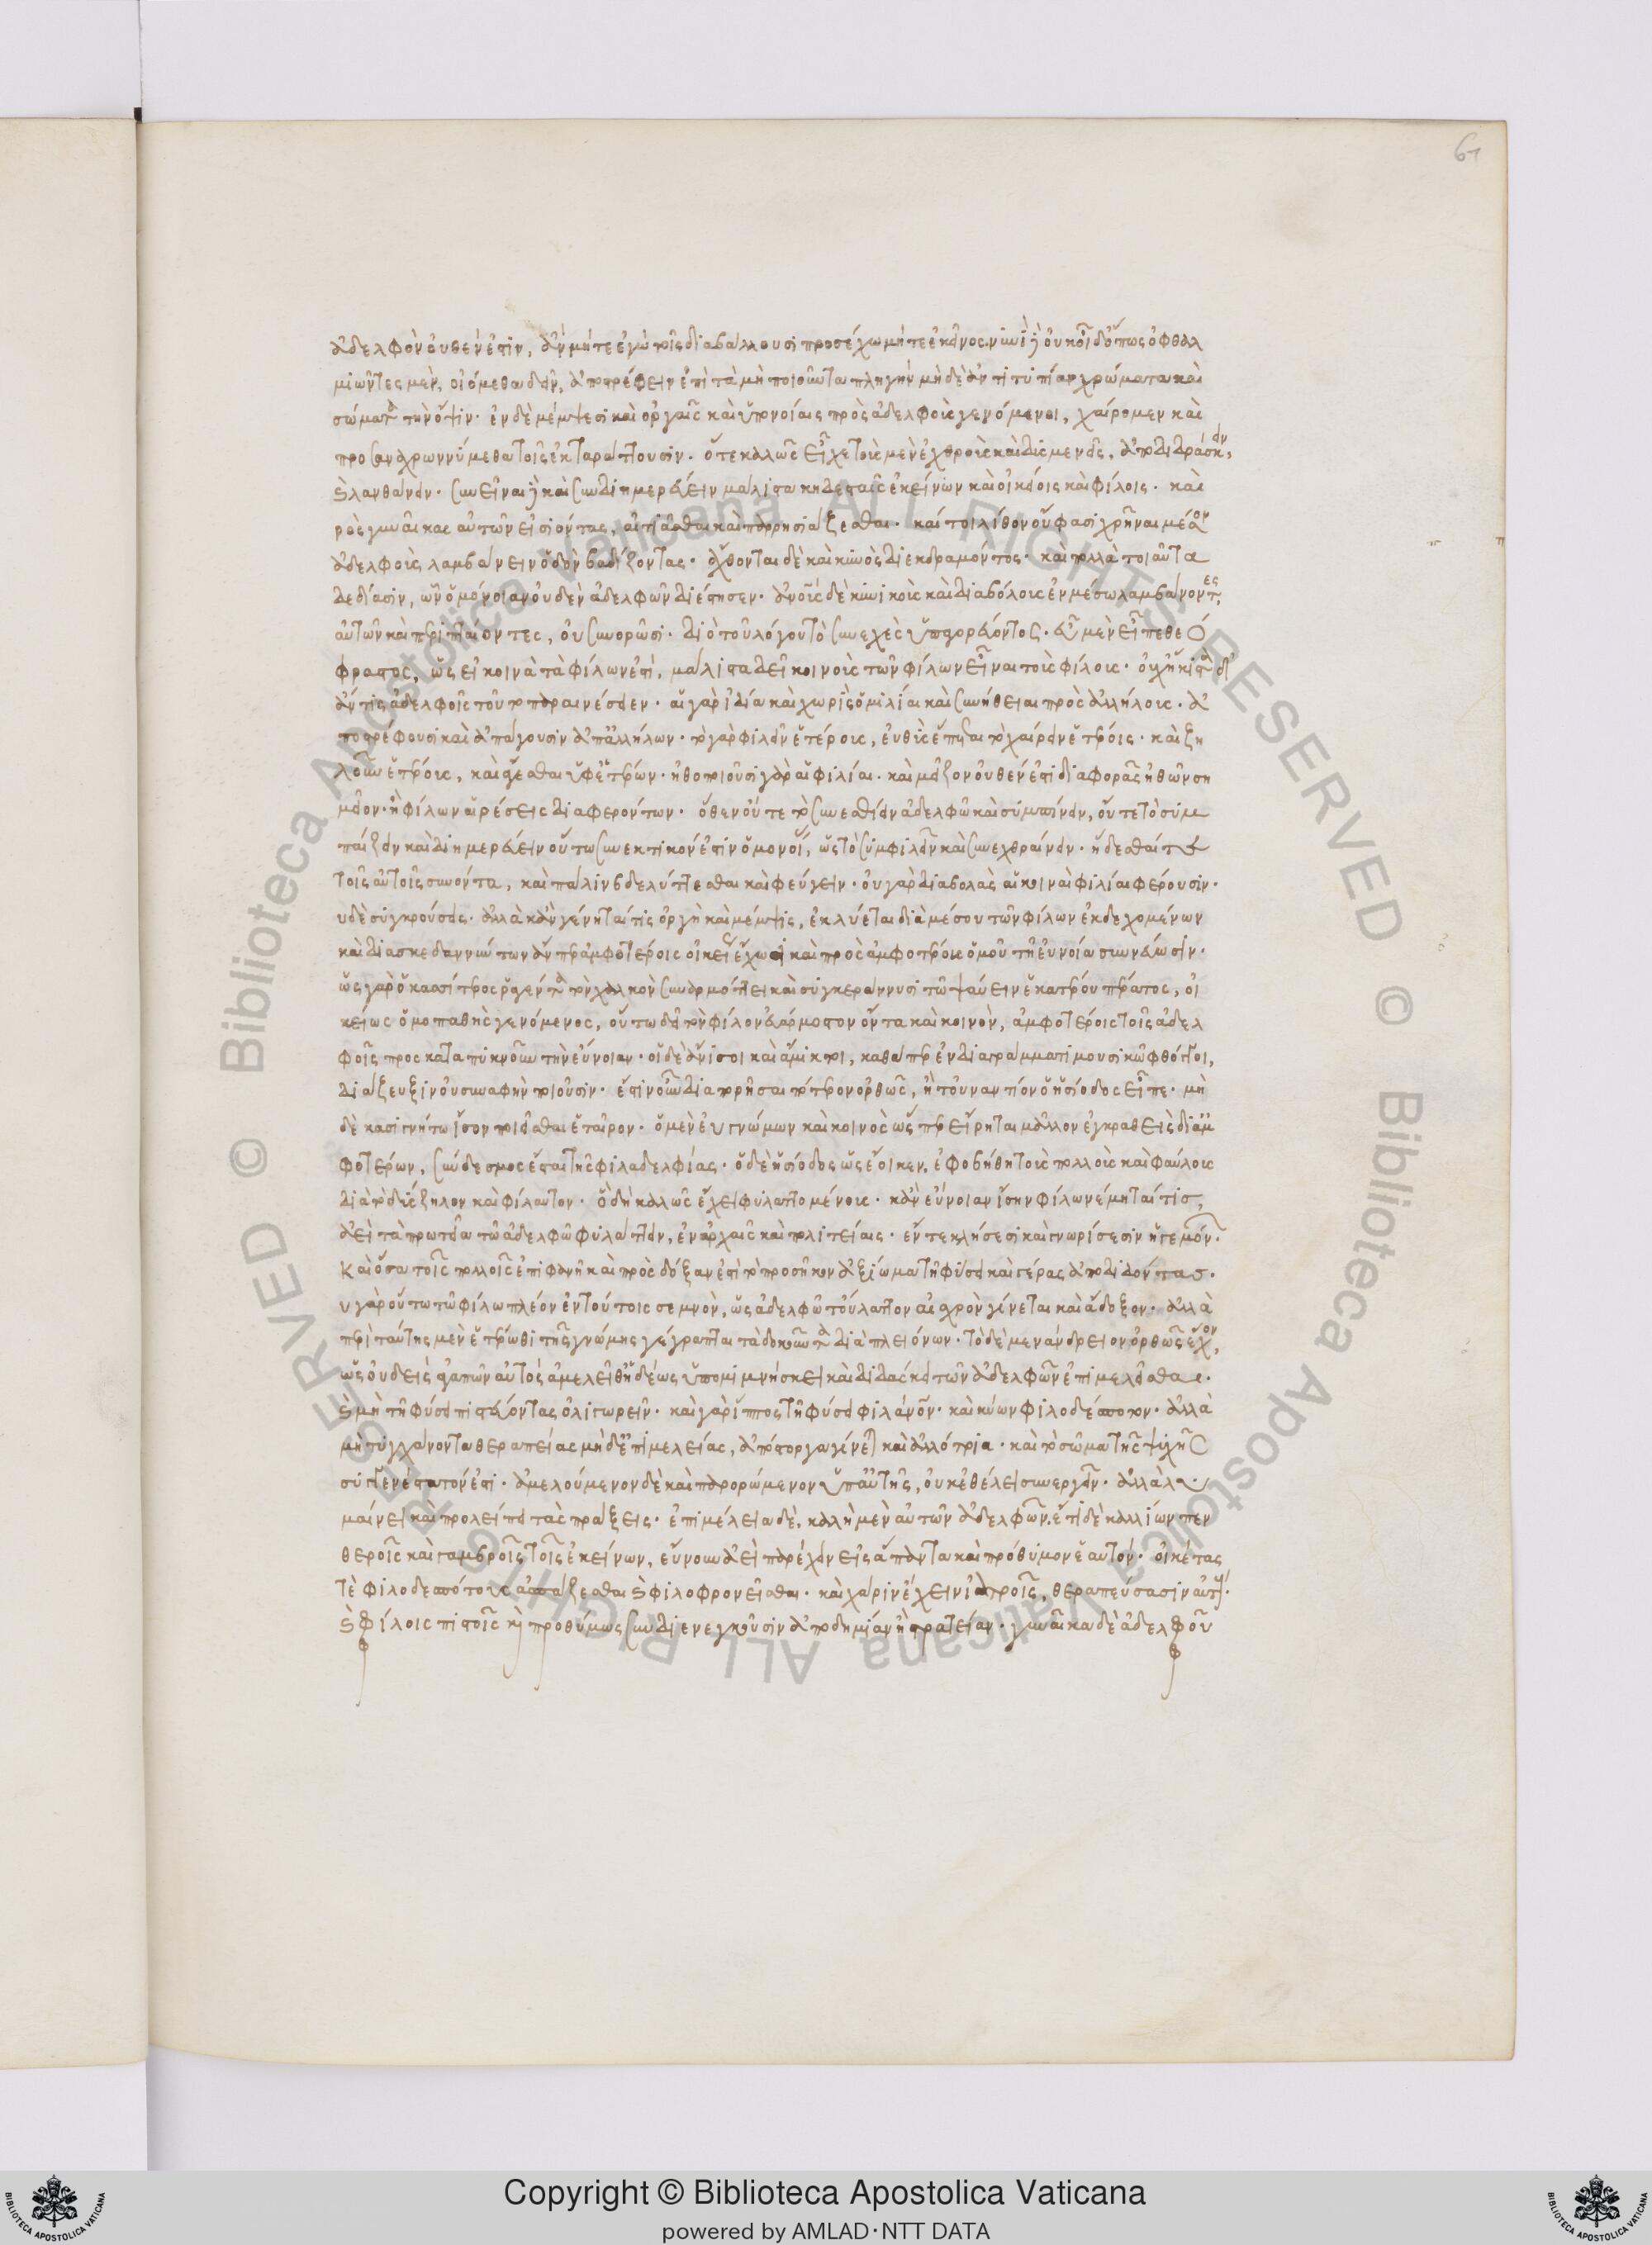 61
ἀδελφὸν οὐθέν ἐστιν, ἂν μήτε ἐγὼ τοῖς διαβάλλουσι προσέχω μήτε ἐκεῖνος. νυνὶ γὰρ οὐκ οἶδ' ὅπως ὀφθαλ
μιῶντες μὲν, οἰόμεθα δεῖν, ἀποστρέφειν ἐπὶ τὰ μὴ ποιοῦντα πληγὴν μὴδὲ ἀντιτυπίαν χρώματα καὶ
σώματα τὴν ὄψιν. ἐν δὲ μέμψεσι καὶ ὀργαῖς καὶ ὑπονοίαις πρὸς ἀδελφοὺς γενόμενοι, χαίρομεν καὶ
προσαναχρωννύμεθα τοῖς ἐκταράττουσιν. ὅτε καλῶς εἶχε τοὺς μὲν ἐχθροὺς καὶ δυσμενεῖς, ἀποδιδράσκειν
καὶ λανθάνειν. συνεῖναι δὲ καὶ συνδιημερεύειν μάλιστα κηδεσταῖς ἐκείνων καὶ οἰκείοις καὶ φίλοις. καὶ
πρὸς γυναῖκας αὐτῶν εἰσιόντας, αἰτιᾶσθαι καὶ παρρησιάζεσθαι. καίτοι λίθον οὔ φασι χρῆναι μέσον
ἀδελφοὺς λαμβάνειν ὁδὸν βαδίζοντας. ἄχθονται δὲ καὶ κυνὸς διεκδραμόντος. καὶ πολλὰ τοιαῦτα
δεδίασιν, ὧν ὁμόνοιαν οὐδὲν ἀδελφῶν διέστησεν. ἀνοὺς δὲ κυνικοὺς καὶ διαβόλους ἐν μέσω λαμβάνοντες
αὐτῶν καὶ περιπταίοντες, οὐ συνορῶσι. διὸ τοῦ λόγου τὸ συνεχὲς ὑπαγορεύοντος. εὖ μὲν εἶπε θεό
φραστος, ὡς εἰ κοινὰ τὰ φίλων ἐστὶ, μάλιστα δεῖ κοινοὺς τῶν φίλων εἶναι τοὺς φίλους. οὐχ ἥκιστα δ'
ἄν τις ἀδελφοῖς τοῦτο παραινέσειεν. αἱ γὰρ ἰδία καὶ χωρὶς ὁμιλίαι καὶ συνήθειαι πρὸς ἀλλήλους. ἀ
ποστρέφουσι καὶ ἀπάγουσιν ἀπ' ἀλλήλων. τὸ γὰρ φιλεῖν ἑτέρους, εὐθὺς ἕπεται τὸ χαίρειν ἑτέροις. καὶ ζη
λοῦν ἑτέρους, καὶ ἄγεσθαι ὑφ' ἑτέρων. ἠθοποιοῦσι γὰρ αἱ φιλίαι. καὶ μεῖζον οὐθέν ἐστι διαφορᾶς ἠθῶν ση
μεῖον. ἢ φίλων αἱρέσεις διαφερόντων. ὅθεν οὔτε τὸ συνεσθίειν ἀδελφῶ καὶ συμπίνειν, οὔτε τὸ συμ
παίζειν καὶ διημερεύειν οὕτω συνεκτικόν ἐστιν ὁμονοίας, ὡς τὸ συμφιλεῖν καὶ συνεχθραίνειν. ἥδεσθαί τε
τοῖς αὐτοῖς συνόντα, καὶ πάλιν βδελύττεσθαι καὶ φεύγειν. οὐ γὰρ διαβολὰς αἱ κοιναὶ φιλίαι φέρουσιν.
υδὲ συγκρούσεις. ἀλλὰ κἂν γένηταί τις ὀργὴ καὶ μέμψις, ἐκλύεται διὰ μέσου τῶν φίλων ἐκδεχομένων
καὶ διασκεδαννύντων ἂν περ ἀμφοτέροις οἰκείως ἔχωσι καὶ πρὸς ἀμφοτέρους ὁμοῦ τῆ εὐνοία συννεύωσιν.
ὡς γὰρ ὁ κασσίτερος ῥαγέντα τὸν χαλκὸν συναρμόττει καὶ συγκεράννυσι τῶ ψαύειν ἑκατέρου πέρατος, οἰ
κείως ὁμοπαθὴς γενόμενος, οὕτω δεῖ τὸν φίλον εὐάρμοστον ὄντα καὶ κοινὸν, ἀμφοτέροις τοῖς ἀδελ
φοῖς προσκαταπυκνοῦν τὴν εὔνοιαν. οἱ δὲ ἄνισοι καὶ ἄμικτοι, καθάπερ ἐν διαγράμματι μουσικῶ φθόγγοι,
διάζευξιν οὐ συναφὴν ποιοῦσιν. ἔστιν οὖν διαπορῆσαι πότερον ὀρθῶς, ἢ τοὐναντίον ὁ ἡσίοδος εἶπε. μὴ
δὲ κασιγνήτω ἶσον ποιεῖσθαι ἑταῖρον. ὁ μὲν εὐγνώμων καὶ κοινὸς ὥσπερ εἴρηται μᾶλλον ἐγκραθεὶς δι' ἀμ
φοτέρων, σύνδεσμος ἔσται τῆς φιλαδελφίας. ὁ δὲ ἡσίοδος ὡς ἔοικεν, ἐφοβήθη τοὺς πολλοὺς καὶ φαύλους
διὰ τὸ δύσζηλον καὶ φίλαυτον. ὃ δὴ καλῶς ἔχει φυλαττομένους. κἂν εὔνοιαν ἴσην φίλω νέμηταί τις,
ἀεὶ τὰ πρωτεῖα τῶ ἀδελφῶ φυλάττειν, ἐν ἀρχαῖς καὶ πολιτείαις. ἔν τε κλήσεσι καὶ γνωρίσεσιν ἡγεμόνων.
καὶ ὅσα τοῖς πολλοῖς ἐπιφανῆ καὶ πρὸς δόξαν ἐστὶ τὸ προσῆκον ἀξίωμα τῆ φύσει καὶ γέρας ἀποδιδόντας.
υ γὰρ οὕτω τῶ φίλω πλέον ἐν τούτοις σεμνὸν, ὡς ἀδελφῶ τοὔλαττον αἰσχρὸν γίνεται καὶ ἄδοξον. ἀλλὰ
περὶ ταύτης μὲν ἑτέρωθι τῆς γνώμης γέγραπται τὰ δοκοῦντα διὰ πλειόνων. τὸ δὲ μενάνδρειον ὀρθῶς ἔχον,
ὡς οὐδεὶς ἀγαπῶν αὐτὸς ἀμελεῖθ' ἡδέως ὑπομιμνήσκει καὶ διδάσκει τῶν ἀδελφῶν ἐπιμελεῖσθαι.
καὶ μὴ τῆ φύσει πιστεύοντας ὀλιγωρεῖν. καὶ γὰρ ἵππος τῆ φύσει φιλάνον. καὶ κύων φιλοδέσποτον. ἀλλὰ
μὴ τυγχάνοντα θεραπείας μὴδ' ἐπιμελείας, ἀπόστοργα γίνεται καὶ ἀλλότρια. καὶ τὸ σῶμα τῆς ψυχῆς
συγγενέστατόν ἐστι. ἀμελούμενον δὲ καὶ παρορώμενον ὑπ' αὐτῆς, οὐκ ἐθέλει συνεργεῖν. ἀλλὰ λυ
μαίνει καὶ προλείπει τὰς πράξεις. ἐπιμέλεια δὲ, καλὴ μὲν αὐτῶν ἀδελφῶν. ἔτι δὲ καλλίων πεν
θεροῖς καὶ γαμβροῖς τοῖς ἐκείνων, εὔνουν ἀεὶ παρέχειν εἰς ἅπαντα καὶ πρόθυμον ἑαυτόν. οἰκέτας
τὲ φιλοδεσπότους ἀσπάζεσθαι καὶ φιλοφρονεῖσθαι. καὶ χάριν ἔχειν ἰατροῖς, θεραπεύσασιν αὐτούς.
καὶ φίλοις πιστοῖς καὶ προθύμως συνδιενεγκοῦσιν ἀποδημίαν ἢ στρατείαν. γυναῖκα δὲ ἀδελφοῦ
Copyright © Biblioteca Apostolica Vaticana
powered by AMLAD·NTT DATA